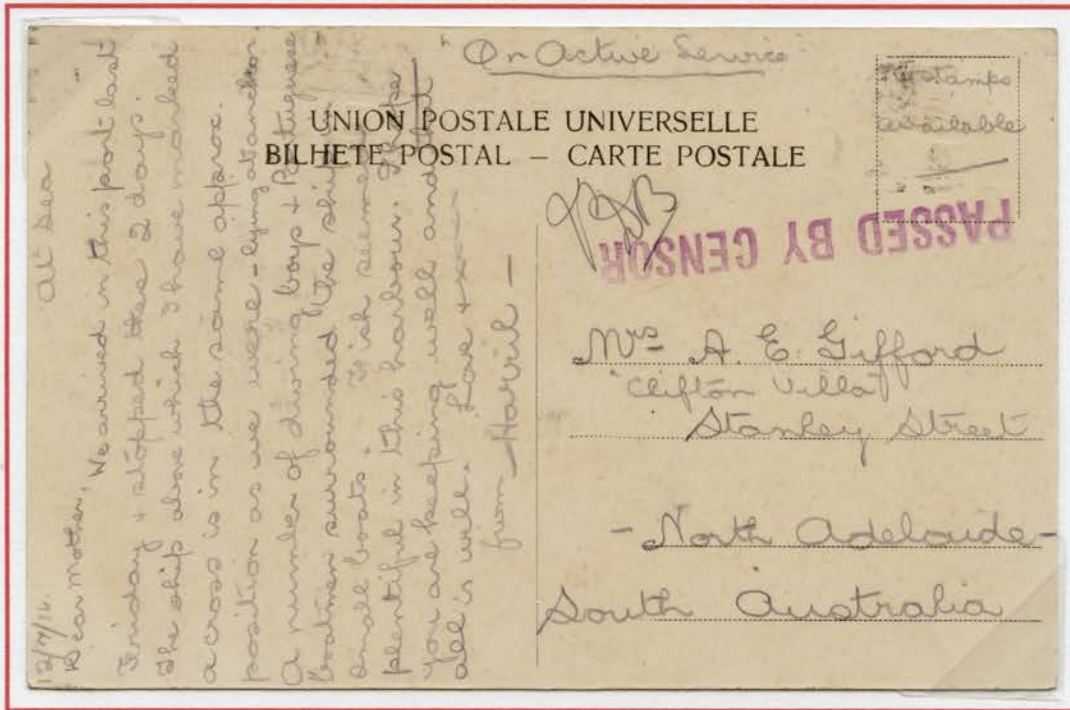 "On Active Service
No stamps
available
UNION POSTALE UNIVERSELLE
BILHETE POSTAL – CARTE POSTALE
PASSED BY CENSOR
Mrs A. E. Gifford
"Clifton Villa"
Stanley Street
- North Adelaide -
South Australia
12/7/16. At Sea
Dear Mother, We arrived in this port last
Friday & stopped there 2 days.
The ship above which I have marked
a cross is in the same approx.
position as we were - lying at anchor.
A number of diving boys & Portuguese
boatmen surrounded the ship in
small boats. Fish seemed
plentiful in this harbour. I hope
you are keeping well and that
all is well. Love & x
from - Harvil -